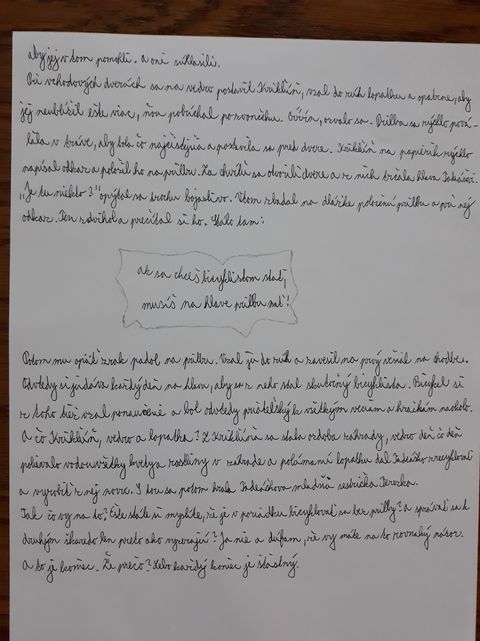 aby jej v tom pomohli. a oni súhlasili.
Pri vchodových dverách sa na vedro postavil Krikľúň, vzal do rúk lopatku a opatrne, aby
jej neublížil ešte viac, ňou pobúchal po zvončeku. Crrrn, ozvalo sa. Prilba sa rýchlo pová-
ľala v tráve, aby bola čo najčistejšia a postavila sa pred dvere. Krikľúň na papierik rýchlo
napísal odkaz a položil ho na prilbu. Za chvíľu sa otvorili dvere a z nich trčala hlava Tadeáša.
"Je tu niekto?" opýtal sa trochu bojazlivo. Vtom zbadal na dlážke položenú prilbu a pri nej
odkaz. Ten zdvihol a prečítal si ho. Stálo tam:
ak sa chceš bicyklistom stať,
musíš na hlave prilbu mať!
Potom mu opäť zrak padol na prilbu. Vzal ju do rúk a zavesil na prvý vešiak na chodbe.
Odvtedy si ju dáva každý deň na hlavu, aby sa z neho stal skutočný bicyklista. Bicykel si
z toho tiež vzal ponaučenie a bol odvtedy priateľský k všetkým veciam a hračkám naokolo.
A čo Krikľúň, vedro a lopatka? Z Krikľúňa sa stala ozdoba záhrady, vedro deň čo deň
polievalo vodou všetky kvety a rastliny v záhrade a polámanú lopatku dal Tadeáško zrecyklovať
a vyrobiť z nej novú. S ňou sa potom hrala Tadeáškova mladšia sestrička Terezka.
Tak čo vy na to? Ešte stále si myslíte, že je v poriadku bicyklovať sa bez prilby? a správať sa k
druhým škaredo len preto ako vyzerajú? Ja nie a dúfam, že vy máte na to rovnaký názor.
A to je koniec. Že prečo? Lebo každý koniec je šťastný.